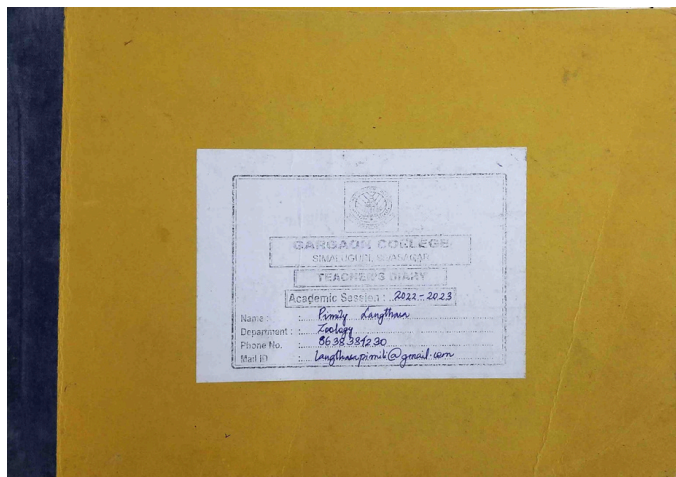 GARGAON COLLEGE
SIMALUGURI, SIVASAGAR
TEACHER'S DIARY
Academic Session : 2022-2023
Name : Pimily Langthasa
Department : Zoology
Phone No. : 8638381230
Mail ID : langthasapimili@gmail.com